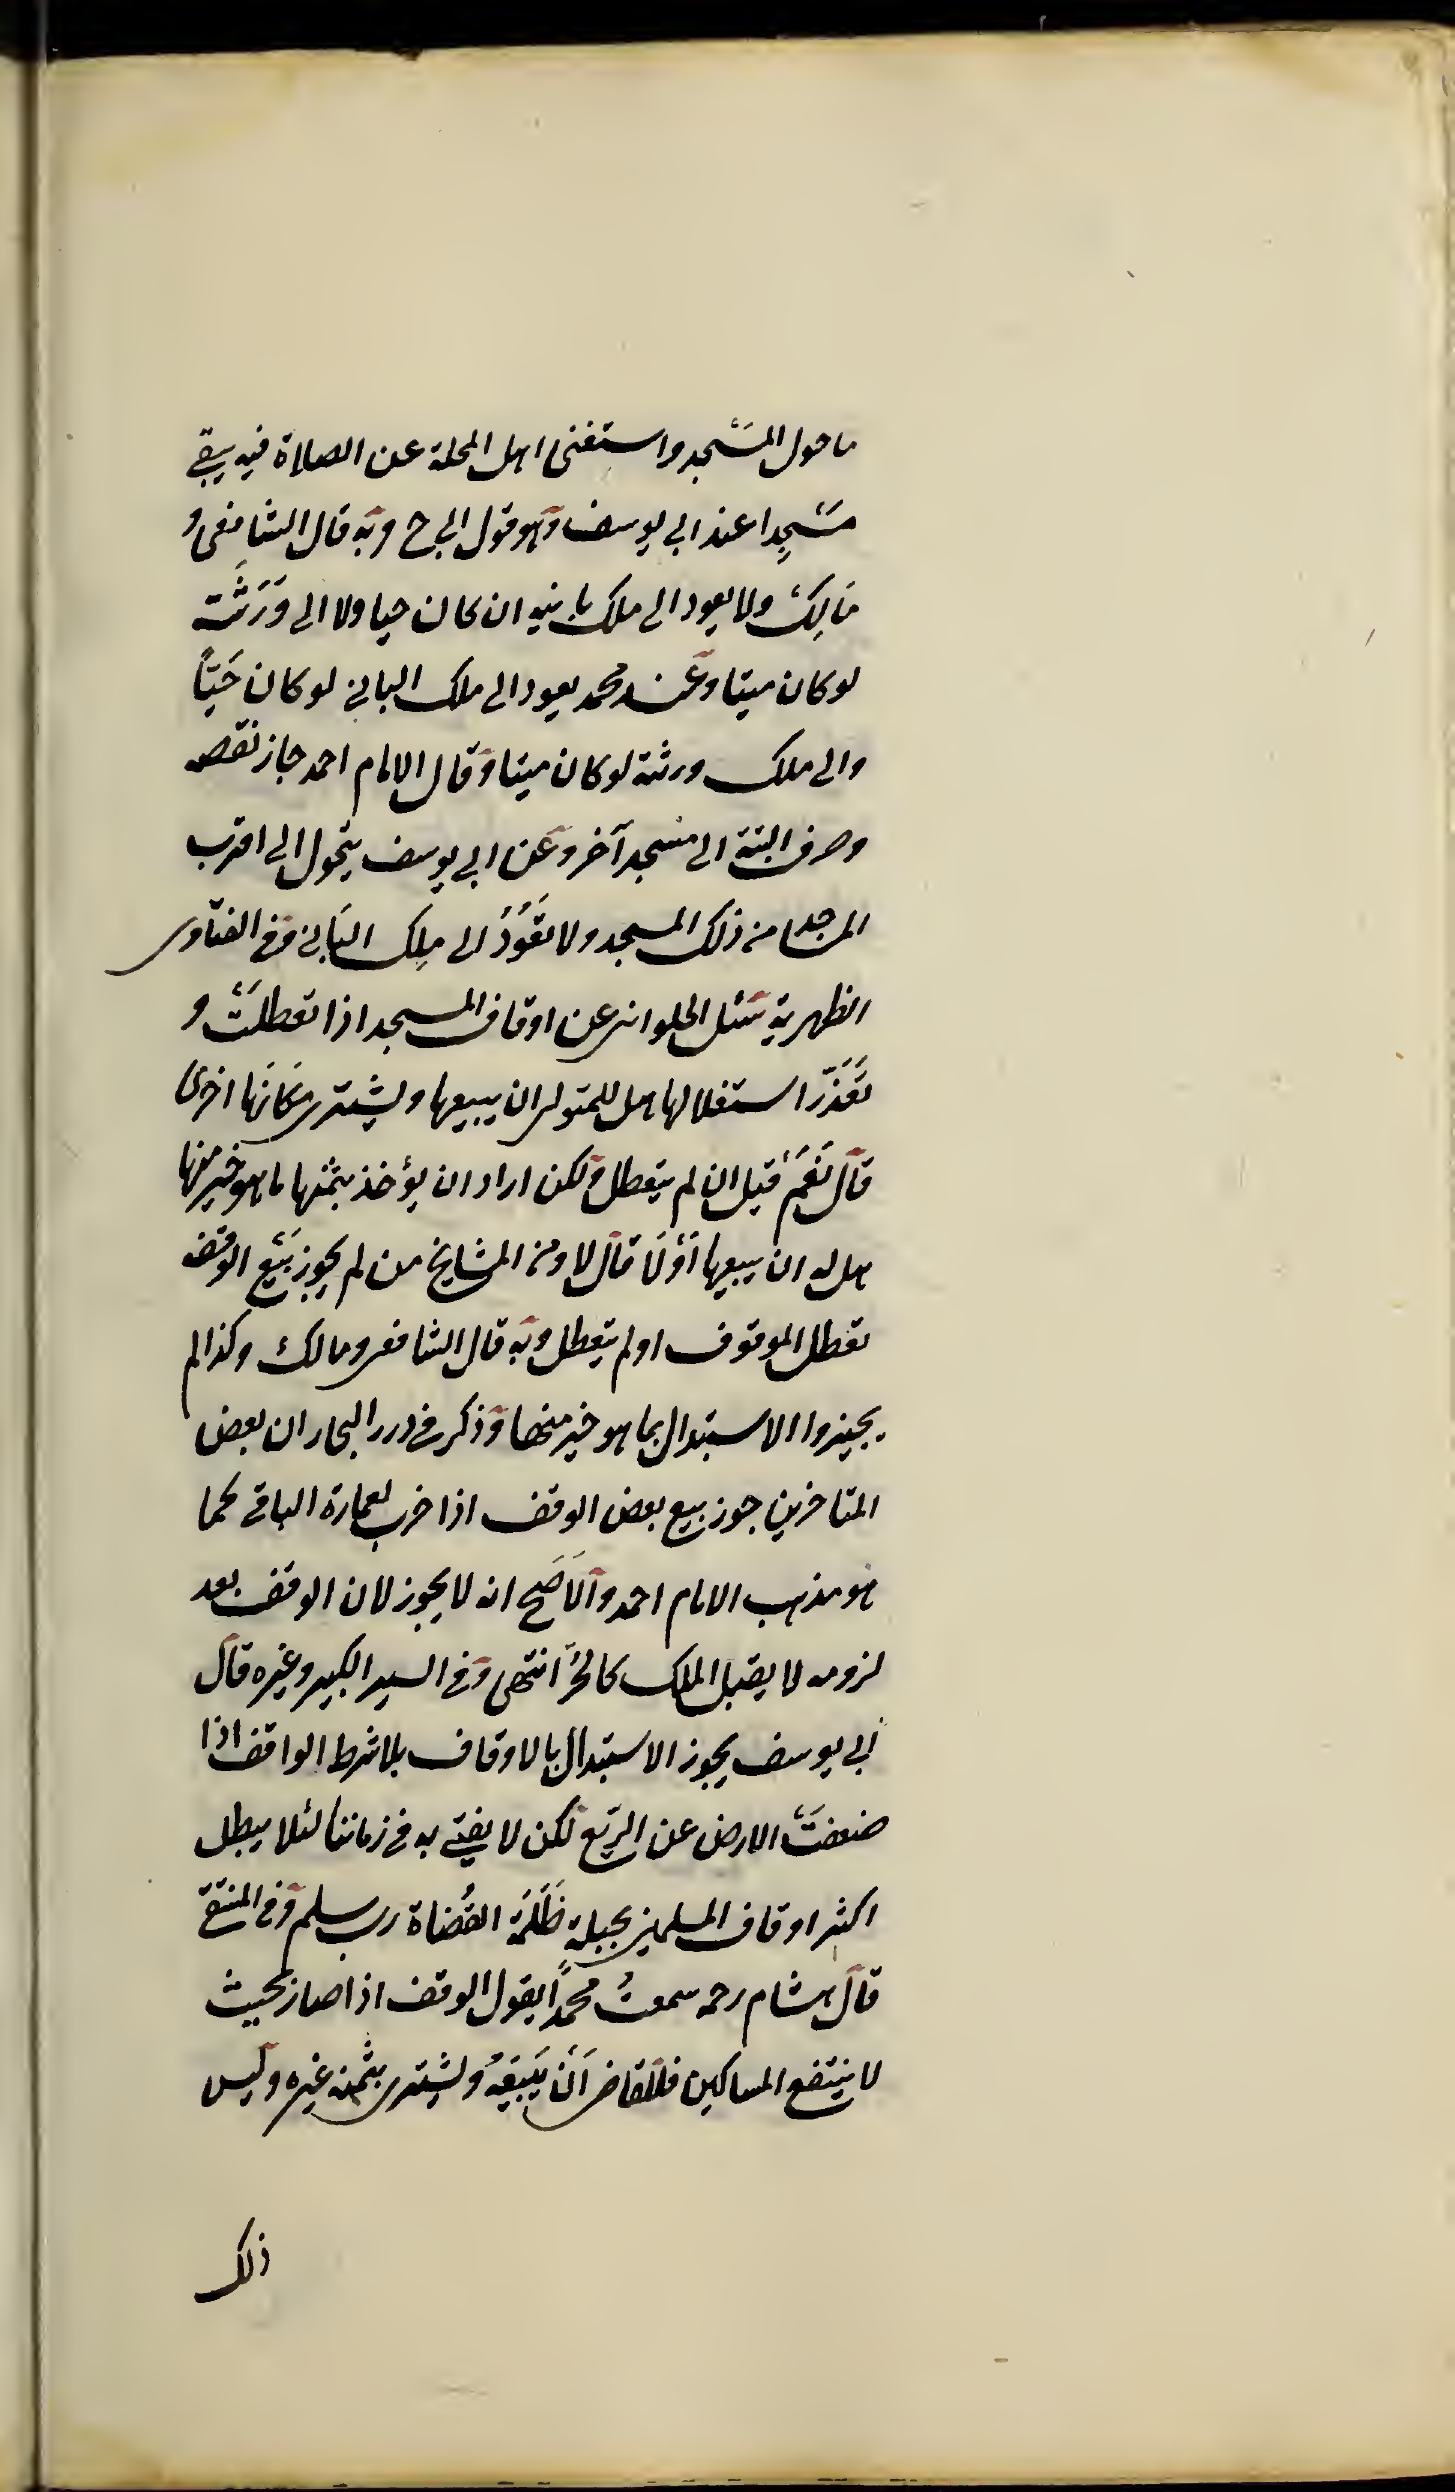 ما حول المسْجد واستغنى اهل المحلة عن الصلاة فيه يبقى
مسْجِدا عند ابي يوسف وهو قول ابي ح وبه قال الشافعى و
مَالِكْ ولا يعود الى ملك بانيه ان كان حيا ولا الى وَرَثَته
لو كان ميتا وعند محمد يعود الى ملك الباني لو كان حَيّاً
والى ملك ورثته لو كان ميتا وقال الامام احمد جاز نقضه
وصرف الى مسجد آخر وعن ابي يوسف يتحول الى اقرب
المساجد من ذلك المسجد ولا يَعُوَدُ الى مِلِك البَاني وفى الفتاوى
الظهرية سئل الحلوانى عن اوقاف المسجد اذا تعطلَتْ و
تعَذّر استغلالها هل للمتولى ان يبيعها ويشترى مكانَها اخرى
قال نَعَمْ قيل ان لم يتعطل ولكن اراد ان يؤخذ بثمنها ما هو خير منها
هل له ان يبيعها اَوْ لَا قال لا ومن المشايخ من لم يجوز بَيْع الوقف
تعطل الموقوف او لم يتعطل وبه قال الشافعى ومالك وكذا لم
يجيزوا الاستبدال بما هو خير منها وذكر فى درر البحار ان بعض
المتاخرين جوز بيع بعض الوقف اذا خرب لعمارة الباقى كما
هو مذهب الامام احمد والَاصَح انه لا يجوز لان الوقف بعد
لزومه لا يقبل الملك كالحُرّ انتهى وفى السير الكبير وغيره قال
ابي يوسف يجوز الاستبدال بالاوقاف بلا شرط الواقف اذا
ضعفتْ الارض عن الرّيع لكن لا يفتى به فى زماننا لئلا يبطل
اكثر اوقاف المسلمين بحيلة ظَلَمَة القُضاة رب سلم وفى المنتقى
قال هشام رحمه سمعتُ محمداً يقول الوقف اذا صار بحيث
لا ينتفع المساكين فللقاضى اَنْ يَبَيعَهُ ويشترى بثمنه غيره وليس
ذلك